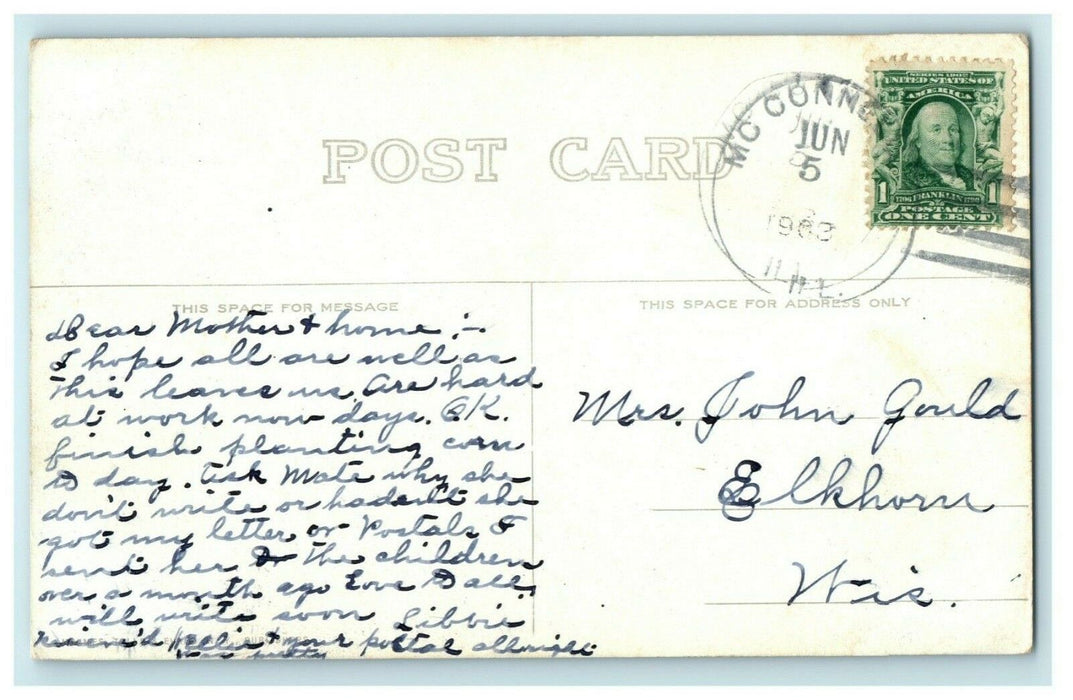 POST CARD
MC CONNE
JUN
5
ILL.
SERIES 1902
UNITED STATES OF
AMERICA
1 1
1706 FRANKLIN 1790
POSTAGE
ONE CENT
THIS SPACE FOR MESSAGE
Dear Mother & home :-
I hope all are well as
this leaves us. Are hard
at work now days. CK.
finish planting corn
to day. Ask Mate why she
don't write or hadent she
got my letter or Postals I
sent her & the children
over a month ago Love to all,
will write soon Libbie
reciev'd Nellie & your postal allright
was pretty
THIS SPACE FOR ADDRESS ONLY
Mrs. John Gould
Elkhorn
Wis.